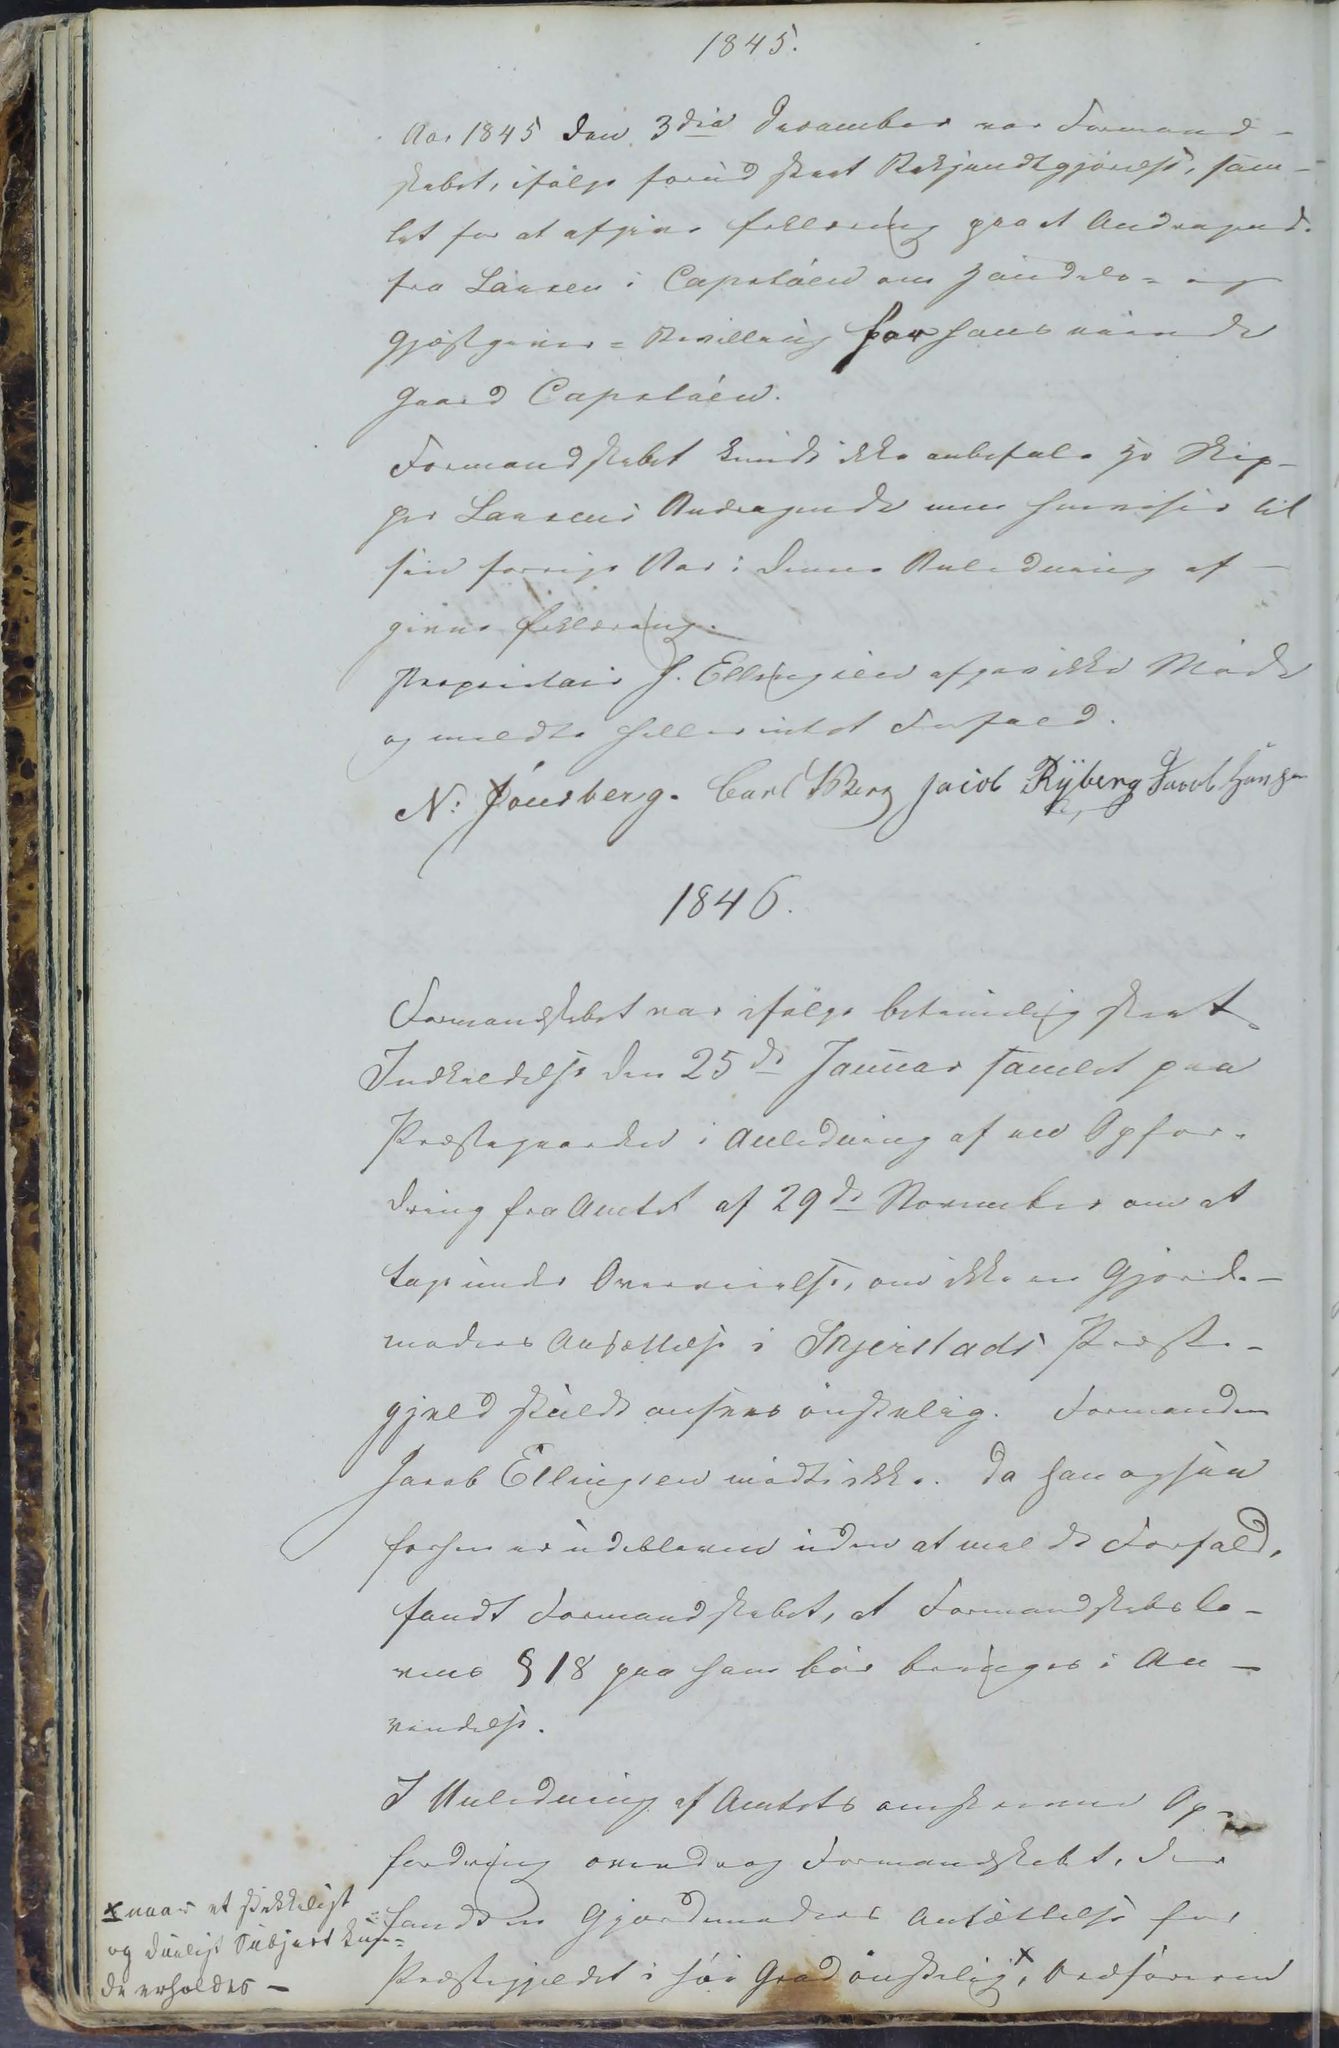 1845.
Aar 1845 den 3die December var Formand-
skabet, ifølge forud skeet Bekjendtgjørelse, sam-
let for at afgive Erklæring paa et Andragende
fra Larsen i Capstøen om Handels- og
Gjæstgiver-Bevilling for hans eiende
Gaard Capstøen.
Formandskabet kunde ikke anbefale Hr Skip-
per Larsens Andragende men henviser til
sin forrige Aar i denne Anledning af-
givne Erklæring.
Proprietair J. Ellingsen afgav ikke Møde
og meldte heller intet Forfald.
N: Jönsberg. Carl Berg Jacob Rÿberg Jacob Hansen
1846.
Formandskabet var ifølge betimelig skeet
Indkaldelse den 25de Januar samlet paa
Præstegaarden i Anledning af en Opfor-
dring fra Amtet af 29de November om at
tage under Overveielse, om ikke en Gjorde-
moders Ansættelse i Skjerstads Præste-
gjeld skulde ansees ønskelig. Formanden
Jacob Ellingsen mødte ikke. Da han ogsaa
forhen er udebleven uden at melde Forfald,
fandt Formandskabet, at Formandskabslo-
vens § 18 paa ham bør bringes i An-
vendelse.
I Anledning af Amtets omskrevne Op-
fordring overdrog Formandskabet, der
fandt en Gjordemoders Ansættelse for
Præstegjeldet i høi Grad ønskelig x, Ordføreren
x naar et skikkeligt
og dueligt Subject kun-
de erholdes -